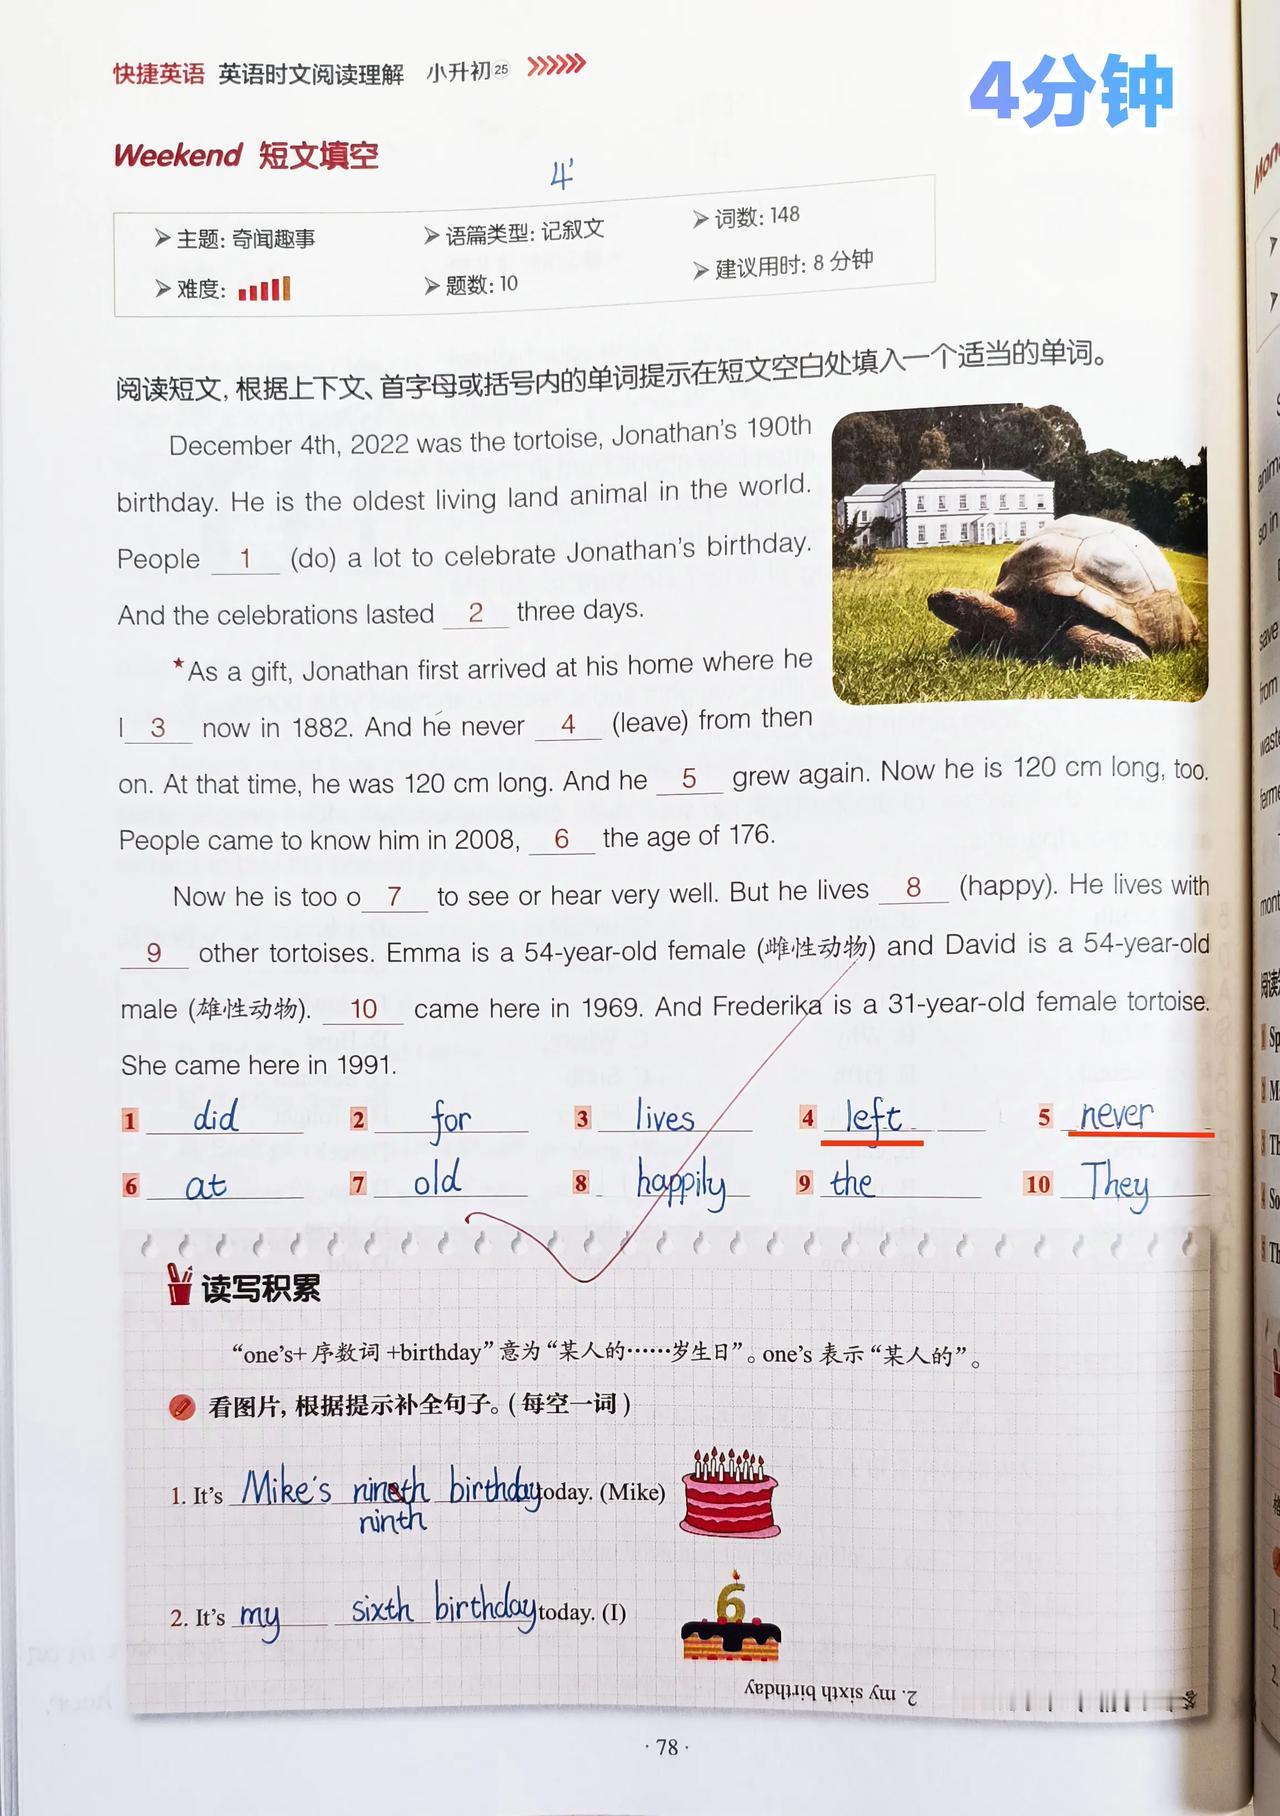 快捷英语 英语时文阅读理解 小升初25
4分钟
Weekend 短文填空
4'
主题: 奇闻趣事 语篇类型: 记叙文 词数: 148
难度: 题数: 10 建议用时: 8 分钟
阅读短文,根据上下文、首字母或括号内的单词提示在短文空白处填入一个适当的单词。
December 4th, 2022 was the tortoise, Jonathan's 190th
birthday. He is the oldest living land animal in the world.
People 1 (do) a lot to celebrate Jonathan's birthday.
And the celebrations lasted 2 three days.
★As a gift, Jonathan first arrived at his home where he
l 3 now in 1882. And he never 4 (leave) from then
on. At that time, he was 120 cm long. And he 5 grew again. Now he is 120 cm long, too.
People came to know him in 2008, 6 the age of 176.
Now he is too o 7 to see or hear very well. But he lives 8 (happy). He lives with
9 other tortoises. Emma is a 54-year-old female (雌性动物) and David is a 54-year-old
male (雄性动物). 10 came here in 1969. And Frederika is a 31-year-old female tortoise.
She came here in 1991.
1 did 2 for 3 lives 4 left 5 never
6 at 7 old 8 happily 9 the 10 They
读写积累
“one's+ 序数词 +birthday”意为“某人的……岁生日”。one's 表示“某人的”。
看图片,根据提示补全句子。(每空一词)
1. It's Mike's nineth birthday today. (Mike)
ninth
2. It's my sixth birthday today. (I)
6
2. my sixth birthday
· 78 ·